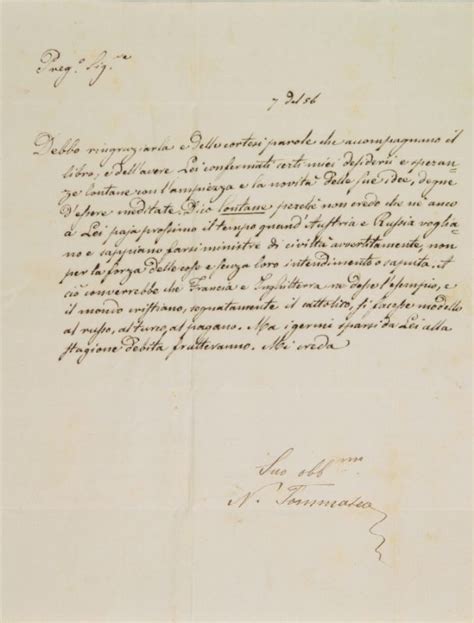 Preg.º Sig.re
7 del 56
Debbo ringraziarla e delle cortesi parole che accompagnano il
libro, e dell'avere Lei confermati certi miei desiderii e speran-
ze lontane con l'ampiezza e la novità delle sue idee, degne
d'essere meditate. Dico lontane perchè non credo che nè anco
a Lei paja prossimo il tempo quand'Austria e Russia voglia-
no e sappiano farsi ministre di civiltà avvertitamente, non
per la forza delle cose e senza loro intendimento o saputa. A
ciò converrebbe che Francia e Inghilterra ne desse l'esempio, e
il mondo cristiano, segnatamente il cattolico, si facesse modello
al russo, al turco, al pagano. Ma i germi sparsi da Lei alla
stagione debita frutteranno. Mi creda
Suo obb.mo
N. Tommaseo